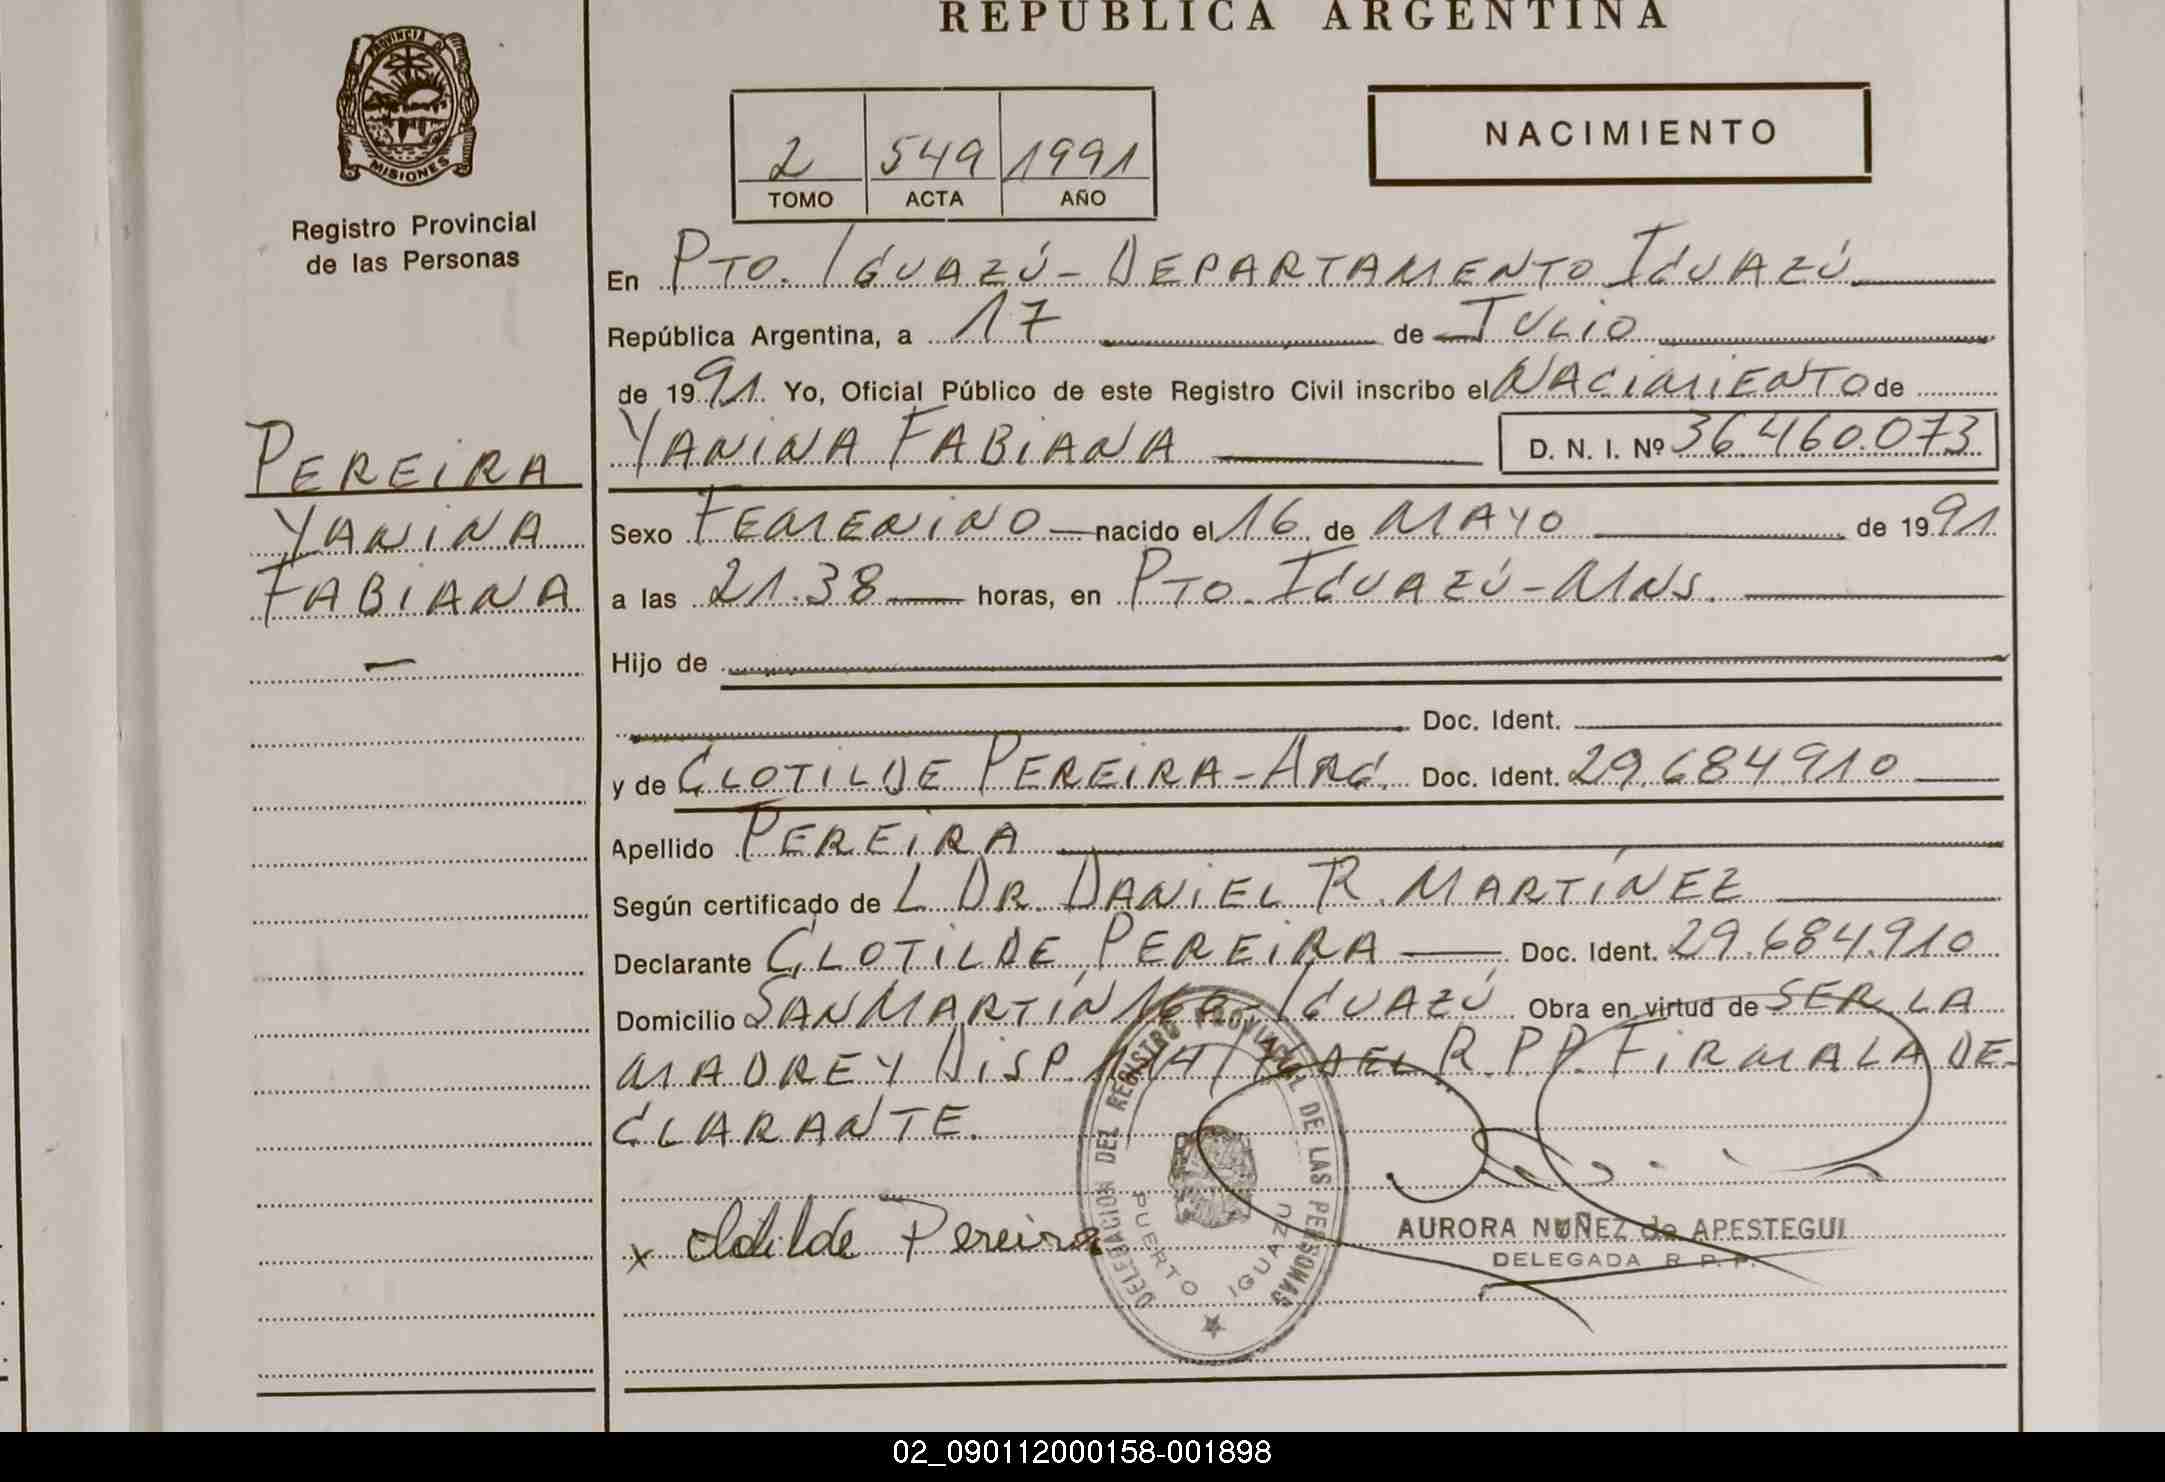 REPUBLICA ARGENTINA
PROVINCIA DE
MISIONES
Registro Provincial
de las Personas
NACIMIENTO
2 549 1991
TOMO ACTA AÑO
En PTO. IGUAZÚ - DEPARTAMENTO IGUAZÚ
República Argentina, a 17 de JULIO
de 1991 Yo, Oficial Público de este Registro Civil inscribo el NACIMIENTO de
YANINA FABIANA D. N. I. Nº 36.460.073
PEREIRA
YANINA
FABIANA
Sexo FEMENINO nacido el 16 de MAYO de 1991
a las 21.38 horas, en PTO. IGUAZÚ - MNS.
Hijo de
Doc. Ident.
y de CLOTILDE PEREIRA - ARG. Doc. Ident. 29.684910
Apellido PEREIRA
Según certificado de L DR. DANIEL R. MARTÍNEZ
Declarante CLOTILDE PEREIRA Doc. Ident. 29.684.910
Domicilio SAN MARTÍN IGUAZÚ Obra en virtud de SER LA
MADRE Y DISP. DEL R.P.P. FIRMA LA DE-
CLARANTE.
x Clotilde Pereira
DELEGACION DEL REGISTRO PROVINCIAL DE LAS PERSONAS
PUERTO IGUAZU
AURORA NUÑEZ de APESTEGUI
DELEGADA R. P. P.
02_090112000158-001898